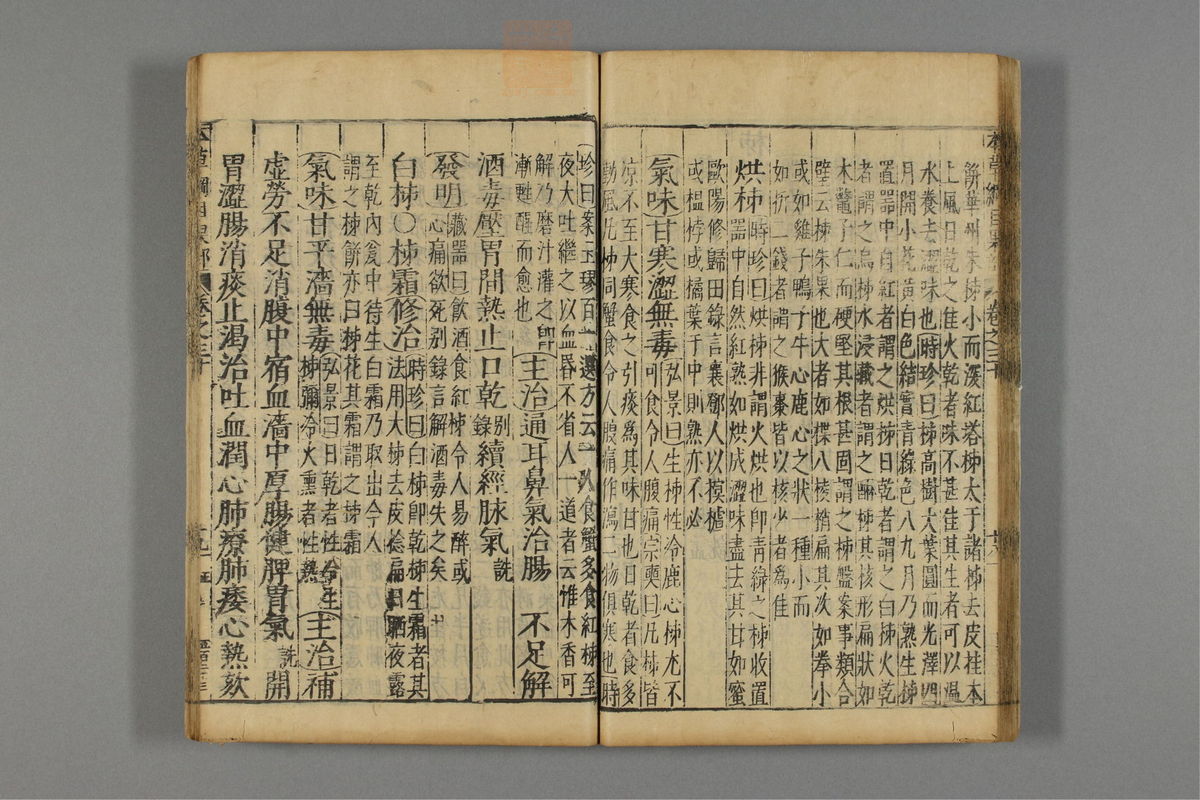 本草綱目果部 卷之三十
餅華州朱柹小而深紅塔柹大于諸柹去皮挂木
上風日乾之佳火乾者味不甚佳其生者可以溫
水養去澀味也時珍曰柹高樹大葉圓而光澤四
月開小花黃白色結實青綠色八九月乃熟生柹
置器中自紅者謂之烘柹日乾者謂之白柹火乾
者謂之烏柹水浸藏者謂之醂柹其核形扁狀如
木鼈子仁而硬堅其根甚固謂之柹盤案事類合
璧云柹朱果也大者如楪八稜稍扁其次如拳小
或如雞子鴨子牛心鹿心之狀一種小而
如折二錢者謂之猴棗皆以核少者為佳
烘柹時珍曰烘柹非謂火烘也卽青綠之柹收置
器中自然紅熟如烘成澀味盡去其甘如蜜
歐陽修歸田錄言襄鄧人以榠樝
或榲桲或橘葉于中則熟亦不必
氣味甘寒澀無毒弘景曰生柹性冷鹿心柹尤不
可食令人腹痛宗奭曰凡柹皆
涼不至大寒食之引痰為其味甘也日乾者食多
動風凡柹同蟹食令人腹痛作瀉二物俱寒也時
珍曰案王璆百一選方云一人食蟹多食紅柹至
夜大吐繼之以血昏不省人一道者云惟木香可
解乃磨汁灌之卽
漸甦醒而愈也
主治通耳鼻氣治腸 不足解
酒毒壓胃間熱止口乾別錄續經脉氣詵
發明藏器曰飲酒食紅柹令人易醉或
心痛欲死別錄言解酒毒失之矣
白柹○柹霜修治時珍曰白柹卽乾柹生霜者其
法用大柹去皮捻扁日晒夜露
至乾內瓮中待生白霜乃取出今人
謂之柹餅亦曰柹花其霜謂之柹霜
氣味甘平濇無毒弘景曰日乾者性冷生
柹彌冷火熏者性熱
主治補
虛勞不足消腹中宿血濇中厚腸健脾胃氣詵開
胃澀腸消痰止渴治吐血潤心肺療肺痿心熱欬
本草綱目果部 卷之三十